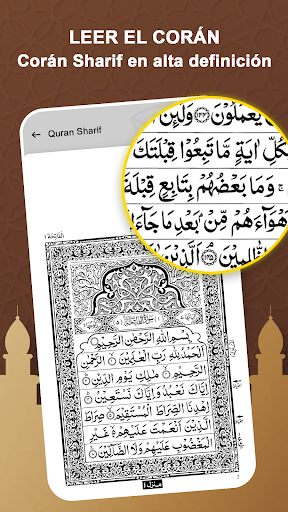 LEER EL CORÁN
Corán Sharif en alta definición
Quran Sharif
يَعۡمَلُوۡنَ
وَلَئِنۡ
كُلِّ اٰيَةٍ مَّا تَبِعُوۡا قِبۡلَتَكَ
وَمَا بَعۡضُهُمۡ بِتَابِعٍ قِبۡلَةَ
هۡوَآءَهُمۡ مِّنۡۢ بَعۡدِ مَا جَآءَ
الَّذِيۡنَ
بِسۡمِ اللّٰهِ الرَّحۡمٰنِ الرَّحِيۡمِ
اَلۡحَمۡدُ لِلّٰهِ رَبِّ الۡعٰلَمِيۡنَ الرَّحۡمٰنِ
الرَّحِيۡمِ مٰلِكِ يَوۡمِ الدِّيۡنِ
اِيَّاكَ نَعۡبُدُ وَاِيَّاكَ نَسۡتَعِيۡنُ
اِهۡدِنَا الصِّرَاطَ الۡمُسۡتَقِيۡمَ صِرَاطَ
الَّذِيۡنَ اَنۡعَمۡتَ عَلَيۡهِمۡ غَيۡرِ
الۡمَغۡضُوۡبِ عَلَيۡهِمۡ وَلَا الضَّآلِّيۡنَ
منزل ۱